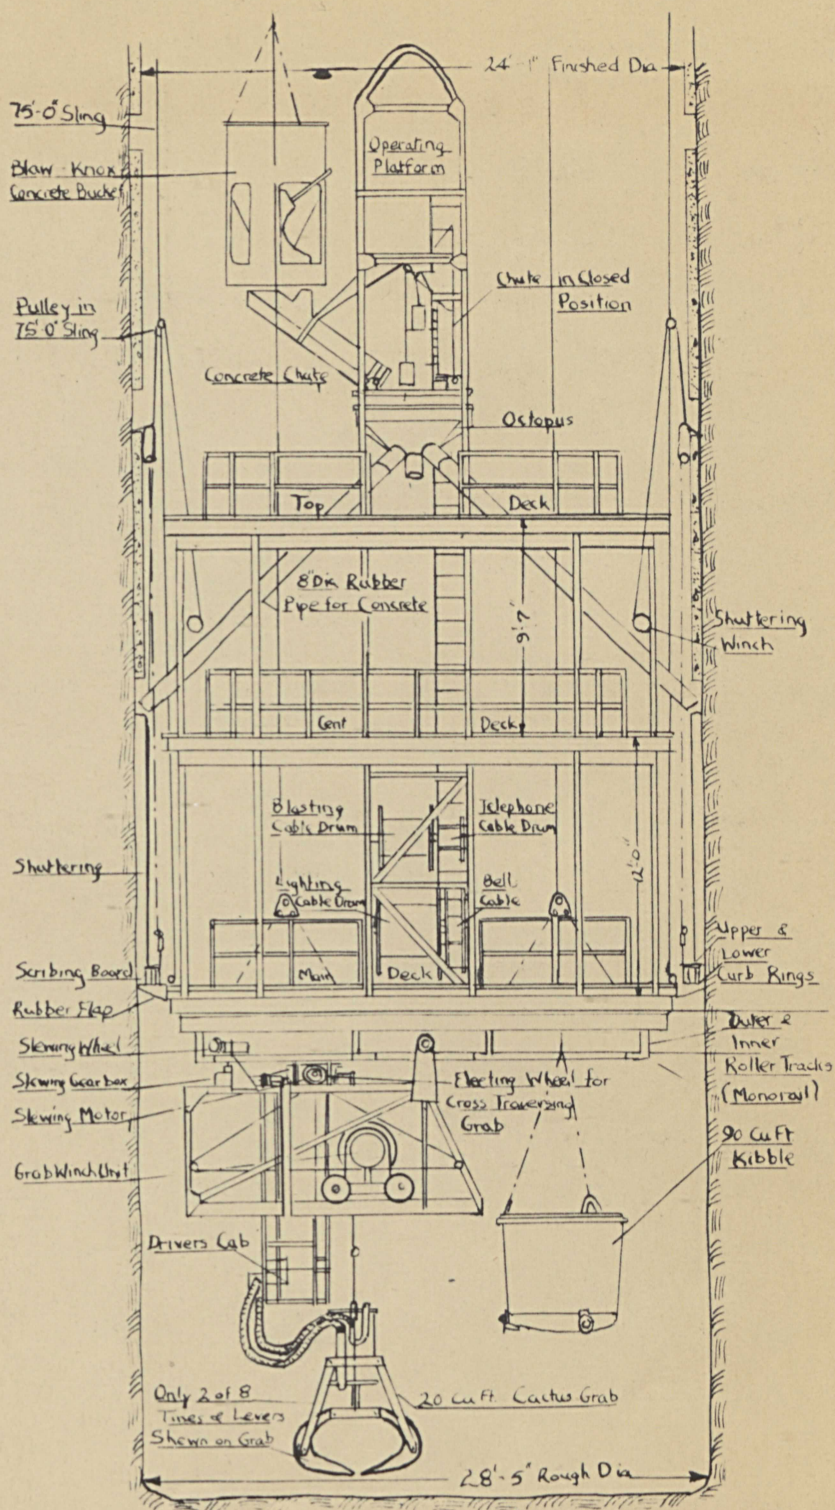 24'-1" Finished Dia
75'-0" Sling
Blaw-Knox
Concrete Bucket
Operating
Platform
Chute in Closed
Position
Pulley in
75'-0" Sling
Concrete Chute
Octopus
Top Deck
8" Dia Rubber
Pipe for Concrete
9'-7"
Shuttering
Winch
Cent Deck
Blasting
Cable Drum
Telephone
Cable Drum
12'-0"
Shuttering
Lighting
Cable Drum
Bell
Cable
Upper &
Lower
Curb Rings
Scribing Board
Main Deck
Rubber Flap
Outer &
Inner
Roller Tracks
(Monorail)
Slewing Wheel
Slewing Gearbox
Slewing Motor
Electing Wheel for
Cross Traversing
Grab
90 Cu Ft
Kibble
Grab Winch Unit
Drivers Cab
Only 2 of 8
Tines & Levers
Shewn on Grab
20 Cu Ft. Cactus Grab
28'-5" Rough Dia